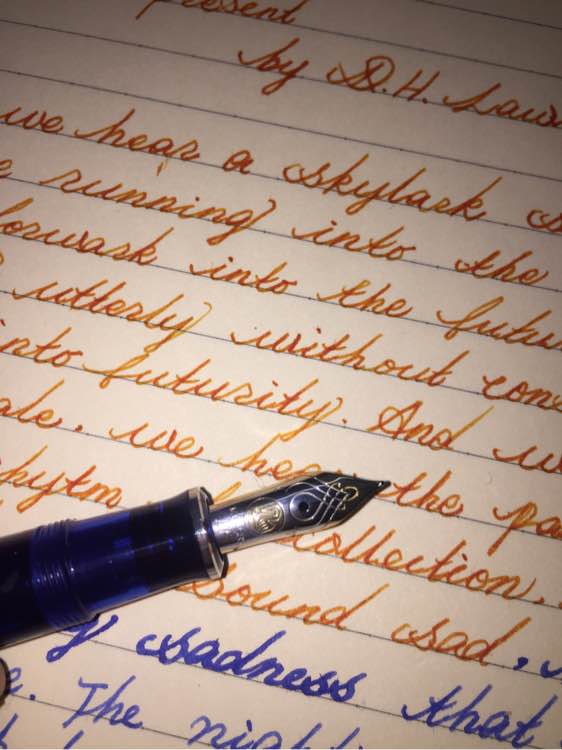 present
by D.H. Law
we hear a skylark s
e running into the
forwark into the futu
utterly without con
into futurity. And w
ale. we hea the pa
hytm collection.
sound sad,
sadness that
e. The nigh